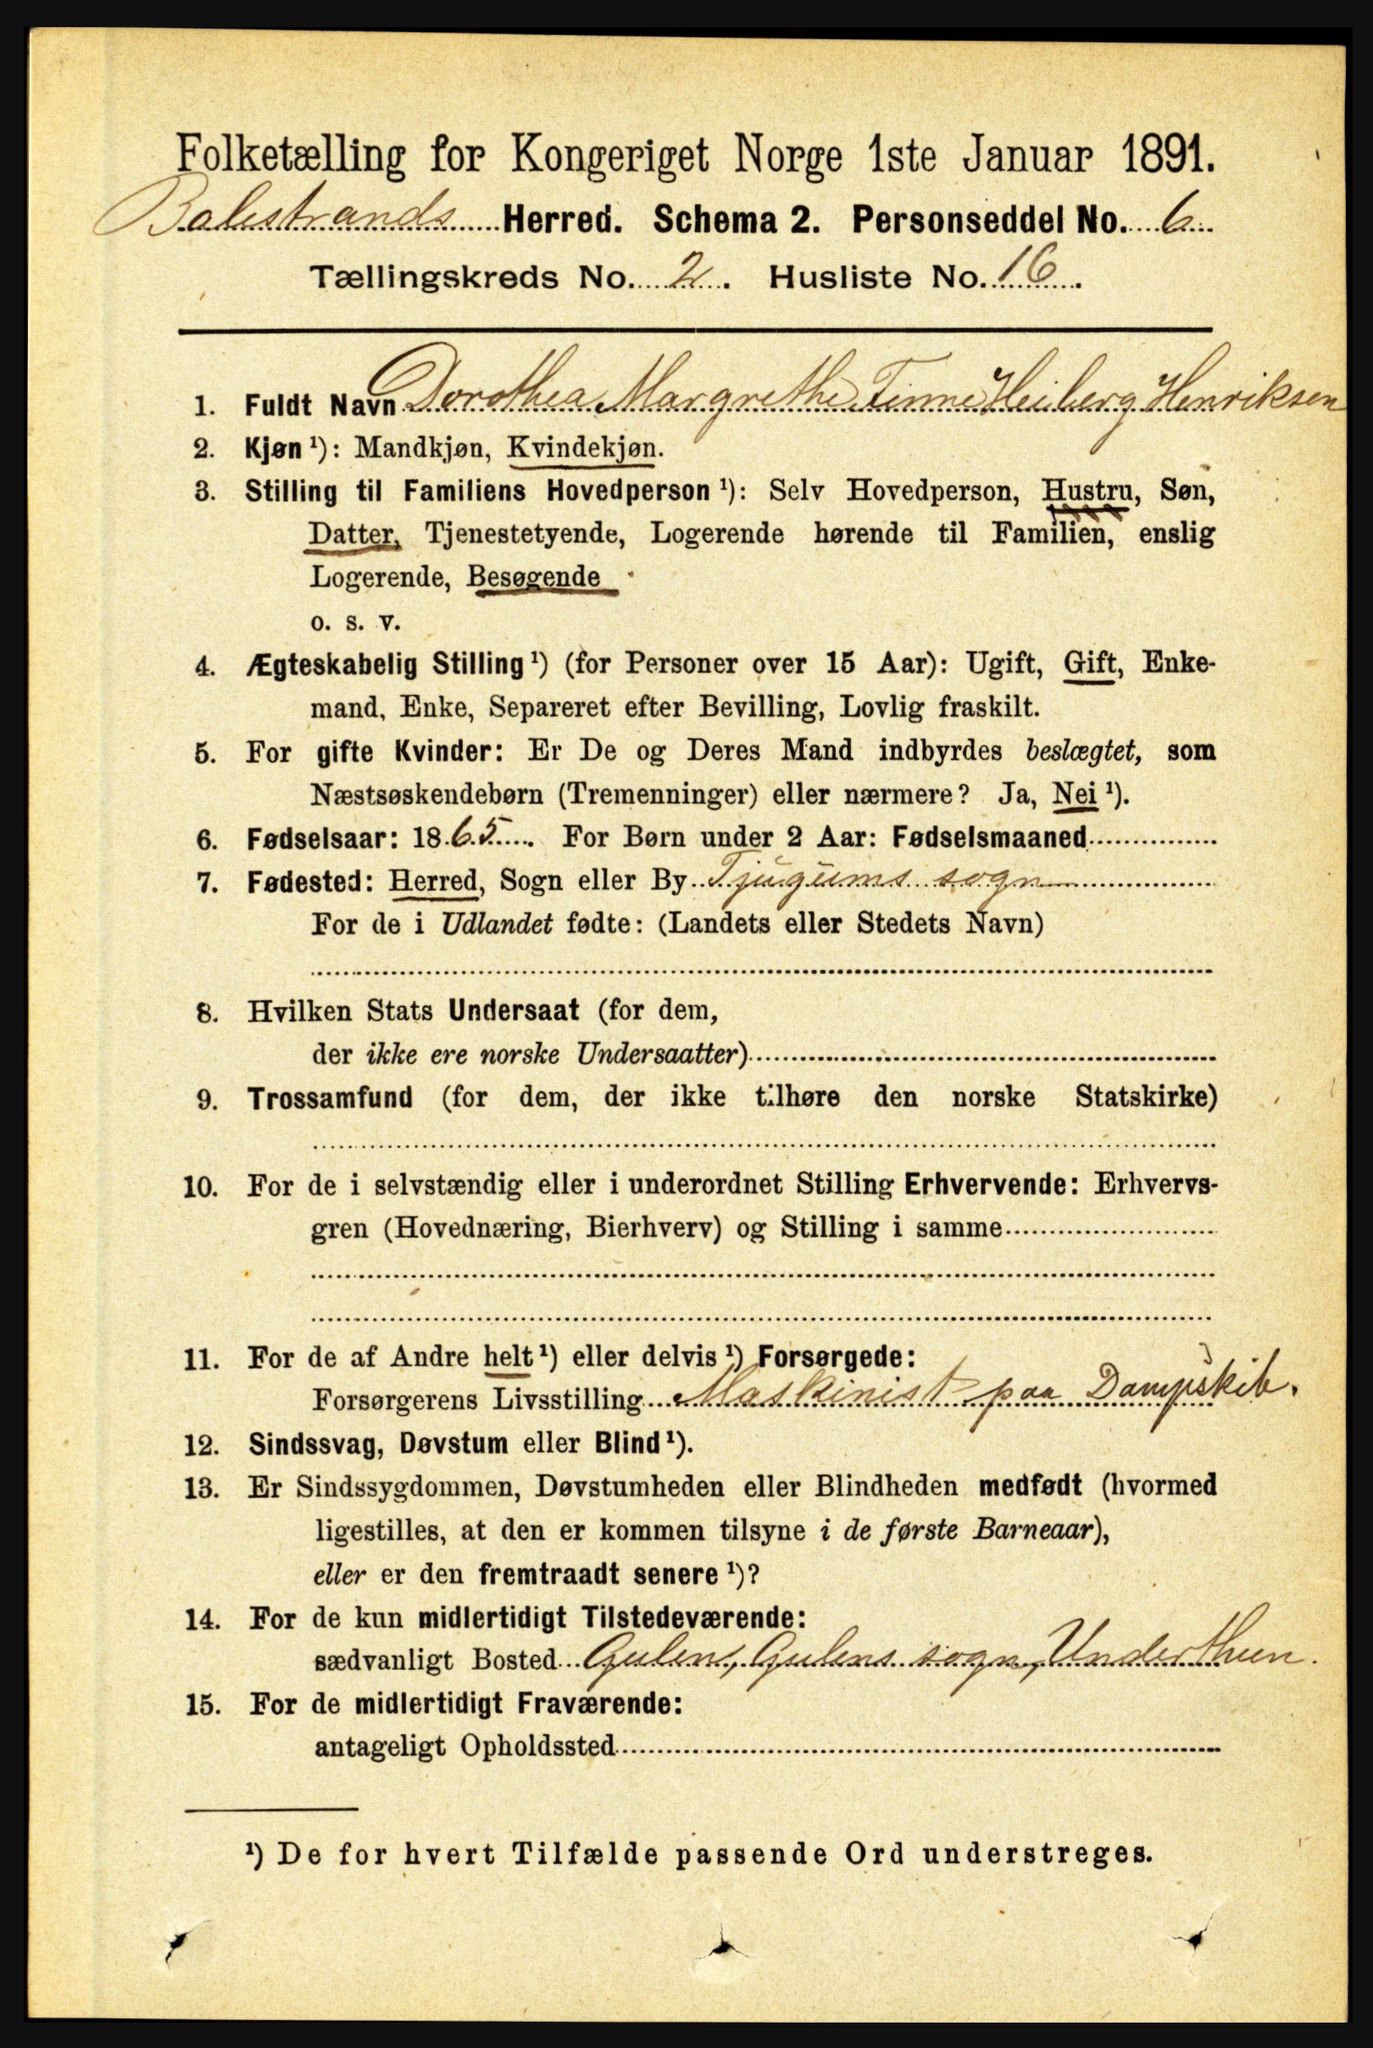 Folketælling for Kongeriget Norge 1ste Januar 1891.
Balestrands Herred. Schema 2. Personseddel No. 6
Tællingskreds No. 2. Husliste No. 16.
1. Fuldt Navn Dorothea Margrethe Finne Heiberg Henriksen
2. Kjøn ¹): Mandkjøn, Kvindekjøn.
3. Stilling til Familiens Hovedperson ¹): Selv Hovedperson, Hustru, Søn,
Datter, Tjenestetyende, Logerende hørende til Familien, enslig
Logerende, Besøgende
o. s. v.
4. Ægteskabelig Stilling ¹) (for Personer over 15 Aar): Ugift, Gift, Enke-
mand, Enke, Separeret efter Bevilling, Lovlig fraskilt.
5. For gifte Kvinder: Er De og Deres Mand indbyrdes beslægtet, som
Næstsøskendebørn (Tremenninger) eller nærmere? Ja, Nei ¹).
6. Fødselsaar: 1865. For Børn under 2 Aar: Fødselsmaaned
7. Fødested: Herred, Sogn eller By Tjugums sogn
For de i Udlandet fødte: (Landets eller Stedets Navn)
8. Hvilken Stats Undersaat (for dem,
der ikke ere norske Undersaatter)
9. Trossamfund (for dem, der ikke tilhøre den norske Statskirke)
10. For de i selvstændig eller i underordnet Stilling Erhvervende: Erhvervs-
gren (Hovednæring, Bierhverv) og Stilling i samme
11. For de af Andre helt ¹) eller delvis ¹) Forsørgede:
Forsørgerens Livsstilling Maskinist paa Dampskib.
12. Sindssvag, Døvstum eller Blind ¹).
13. Er Sindssygdommen, Døvstumheden eller Blindheden medfødt (hvormed
ligestilles, at den er kommen tilsyne i de første Barneaar),
eller er den fremtraadt senere ¹)?
14. For de kun midlertidigt Tilstedeværende:
sædvanligt Bosted Gulens, Gulens sogn, Underthun.
15. For de midlertidigt Fraværende:
antageligt Opholdssted
¹) De for hvert Tilfælde passende Ord understreges.